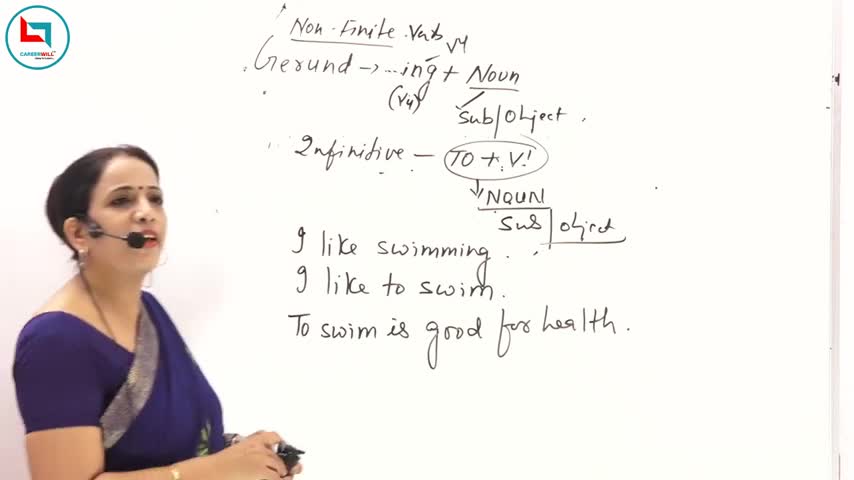 CAREERWILL
Non-Finite Verbs
V4
Gerund → ...ing + Noun
(V4)
Sub/Object.
Infinitive — TO + V1
NOUN
Sub Object
I like swimming.
I like to swim.
To swim is good for health.